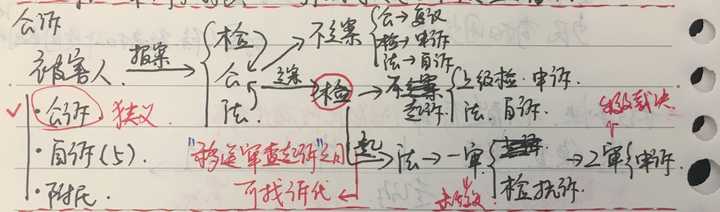 公诉
被害人 报案 → { 检 公 法
不立案 { 公→复议 检→申诉 法→自诉
立案 → 检 → 不起诉 { 上级检·申诉. 法.自诉.
✓ ·公诉. 狭义
·自诉(5).
·附民.
"移送审查起诉"之日
可找诉代
起 → 法 → 一审 { 检抗诉. → 2审 { 申诉.